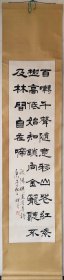 百囀千聲隨意移山花紅紫
樹高低始知鎖向金籠聽不
及林間自在啼